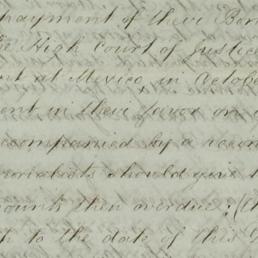 payment of their Bon
the High Court of Justice
at Mexico, in Octobe
ent in their favor on
accompanied by a recom
morialists should give
mounts then overdue; (
to the date of this